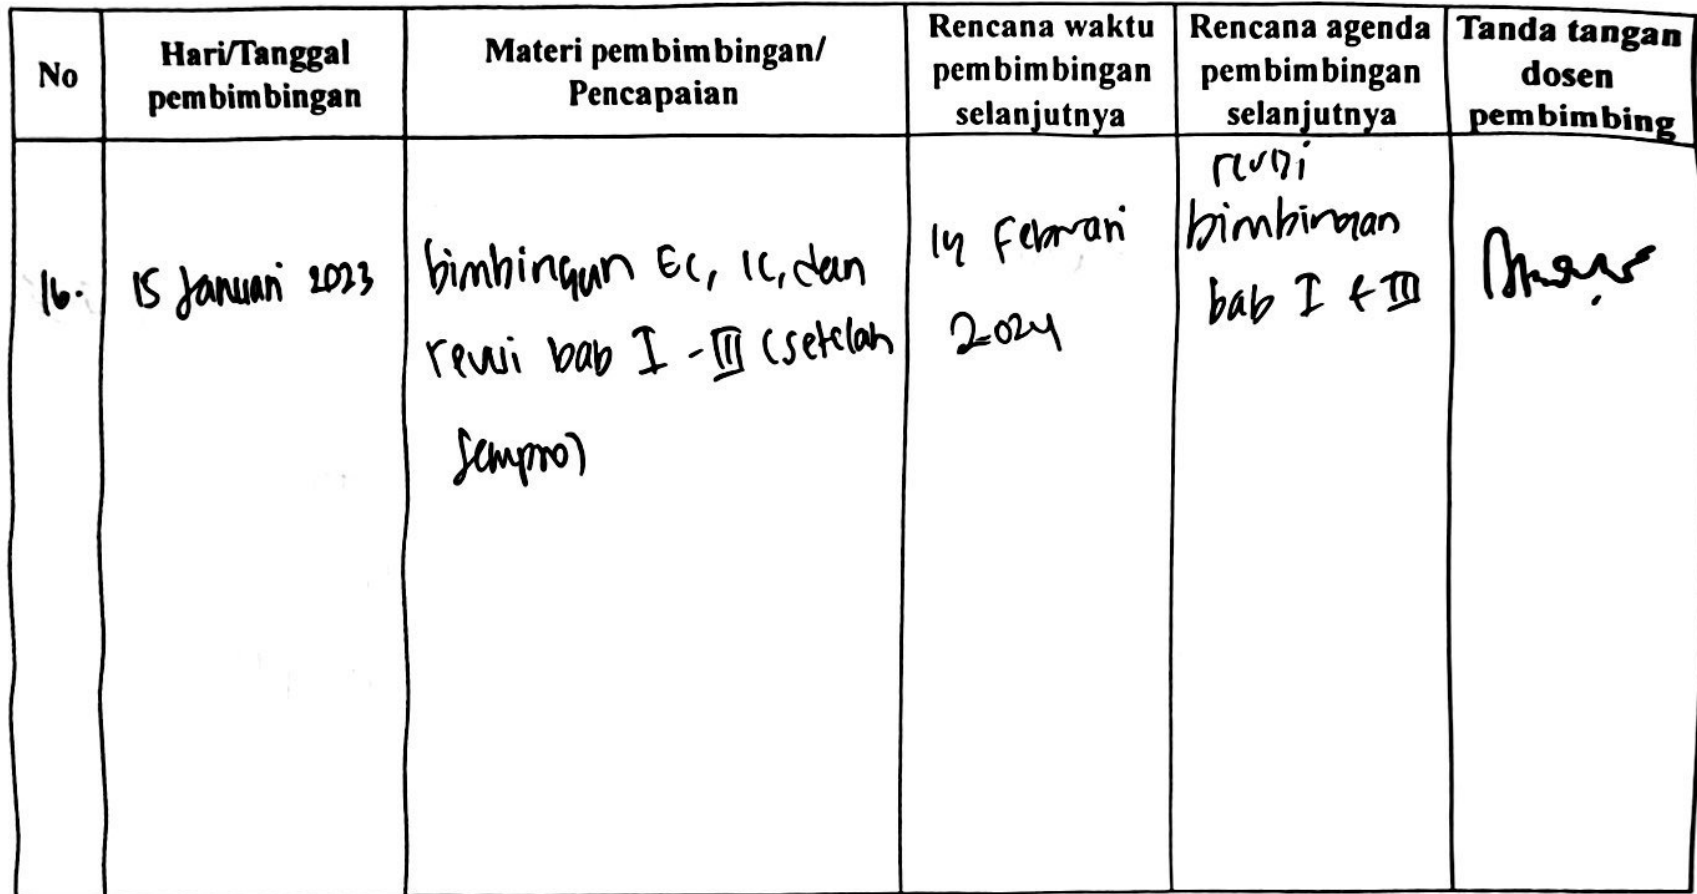 No
Hari/Tanggal
pembimbingan
Materi pembimbingan/
Pencapaian
Rencana waktu
pembimbingan
selanjutnya
Rencana agenda
pembimbingan
selanjutnya
Tanda tangan
dosen
pembimbing
16.
15 Januari 2023
bimbingan EC, IC, dan
revisi bab I - III (setelah
sempro)
14 Februari
2024
revisi
bimbingan
bab I & III